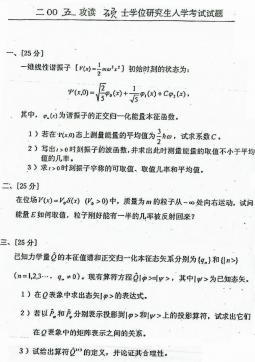 二00五攻读硕士学位研究生入学考试试题
一、[25分]
一维线性谐振子[V(x)=½mω²x²]初始时刻的状态为:
Ψ(x,0)=√(2/5)φ₀(x)+1/√5 φ₁(x)+Cφ₂(x),
其中,φₙ(x)为谐振子的正交归一化能量本征函数。
1)若在Ψ(x,0)态上测量能量的平均值为3/2ħω,试求系数C。
2)写出t>0时刻振子的波函数,并求出此时测量能量的取值不小于平均
值的几率。
3)求t>0时刻振子宇称的可取值、取值几率和平均值。
二、[25分]
在位场V(x)=V₀δ(x) (V₀>0)中,质量为m的粒子从-∞处向右运动。试问
能量E如何取值,粒子刚好能有一半的几率被反射回来?
三、[25分]
已知力学量Q̂的本征值谱和正交归一化本征态矢系分别为{qₙ}和{|n>}
(n=1,2,3…,qₙ≠0)。现有算符方程Q̂|φ>=|ψ>,其中|ψ>为已知态矢。
1)在Q表象中求出态矢|φ>的表达式。
2)若以P̂φ和P̂ψ分别表示投影到|φ>和|ψ>上的投影算符,试求出它们
在Q表象中的矩阵表示之间的关系。
3)试给出算符Q̂⁻¹的定义,并论证其合理性。